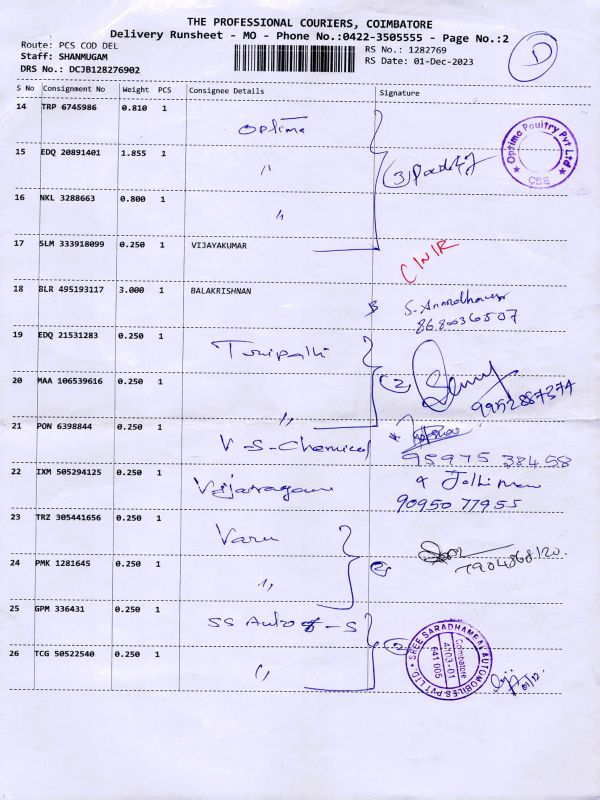 THE PROFESSIONAL COURIERS, COIMBATORE
Delivery Runsheet - MO - Phone No.:0422-3505555 - Page No.:2
Route: PCS COD DEL
Staff: SHANMUGAM
DRS No.: DCJB128276902
RS No.: 1282769
RS Date: 01-Dec-2023
D
S No Consignment No Weight PCS Consignee Details Signature
14 TRP 6745986 0.810 1
Optima
15 EDQ 20891401 1.855 1
"
(3)
Optima Poultry Pvt Ltd
CBE
16 NKL 3288663 0.800 1
"
17 SLM 333918099 0.250 1 VIJAYAKUMAR
18 BLR 495193117 3.000 1 BALAKRISHNAN
8680036507
19 EDQ 21531283 0.250 1
20 MAA 106539616 0.250 1
"
(2)
9952887374
21 PON 6398844 0.250 1
V-S-Chemical
95975 38458
22 IXM 505294125 0.250 1
90950 77955
23 TRZ 305441656 0.250 1
24 PMK 1281645 0.250 1
"
(2)
7904868120
25 GPM 336431 0.250 1
SS Auto - S
(2)
SREE SARADHAMBAL AUTOMOBILES PVT LTD.
Coimbatore
641 005
26 TCG 50522540 0.250 1
"
01/12